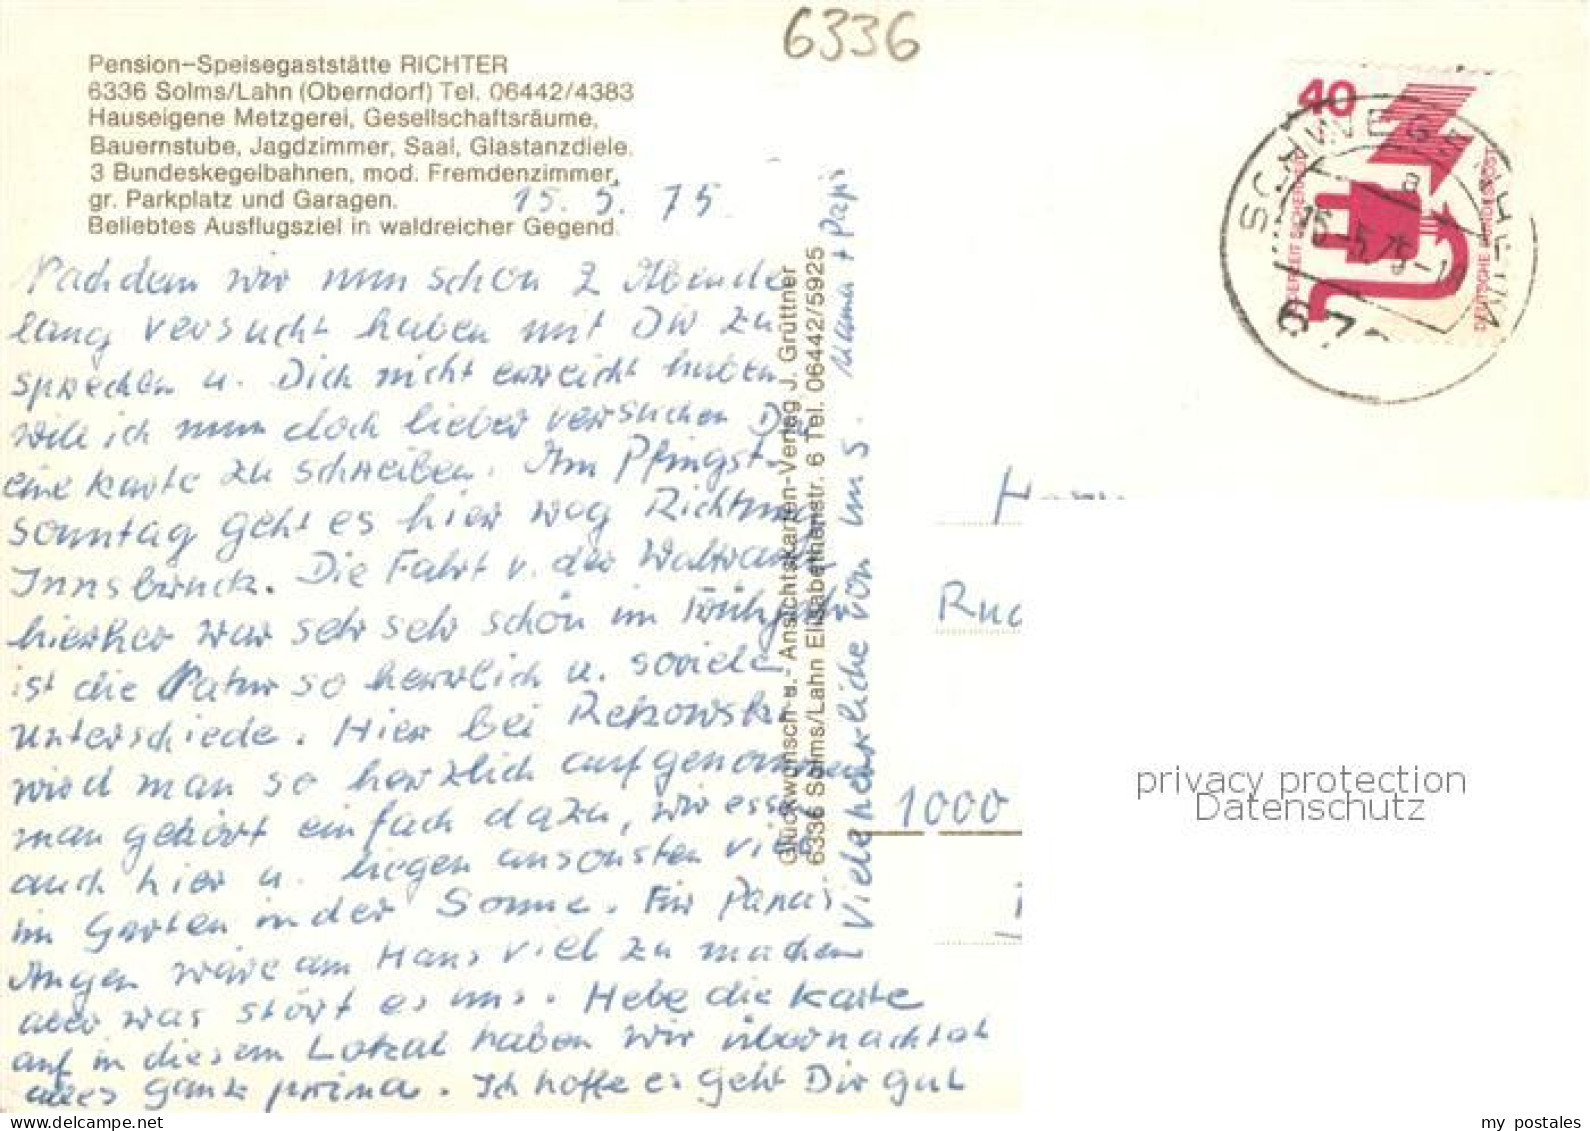 6336
Pension-Speisegaststätte RICHTER
6336 Solms/Lahn (Oberndorf) Tel. 06442/4383
Hauseigene Metzgerei, Gesellschaftsräume,
Bauernstube, Jagdzimmer, Saal, Glastanzdiele.
3 Bundeskegelbahnen, mod. Fremdenzimmer,
gr. Parkplatz und Garagen.
Beliebtes Ausflugsziel in waldreicher Gegend.
15. 5. 75
Nachdem wir nun schon 2 Abende
lang versucht haben mit Dir zu
sprechen u. Dich nicht erreicht haben
will ich nun doch lieber versuchen Dir
eine Karte zu schreiben. Am Pfingst-
sonntag geht es hier weg Richtung
Innsbruck. Die Fahrt v. der Waltraud
hierher war sehr sehr schön im Frühjahr
ist die Natur so herrlich u. soviele
unterschiede. Hier bei Rekowski
wird man so herzlich aufgenommen
man gehört einfach dazu, wir essen
auch hier u. liegen ansonsten viel
im Garten in der Sonne. Für Papas
Augen wäre am Haus viel zu machen
aber was stört es uns. Hebe die Karte
auf in diesem Lokal haben wir übernachtet
alles ganz prima. Ich hoffe es geht Dir gut
Viele herzliche von uns. Mama + Papi
Glückwunsch-u.- Ansichtskarten-Verlag J. Grüttner
6336 Solms/Lahn Elisabethenstr. 6 Tel. 06442/5925
40
JEDERZEIT SICHERHEIT
DEUTSCHE BUNDESPOST
SCHWEGENHEIM
a
16.-5.75-1
1000
privacy protection
Datenschutz
my postales